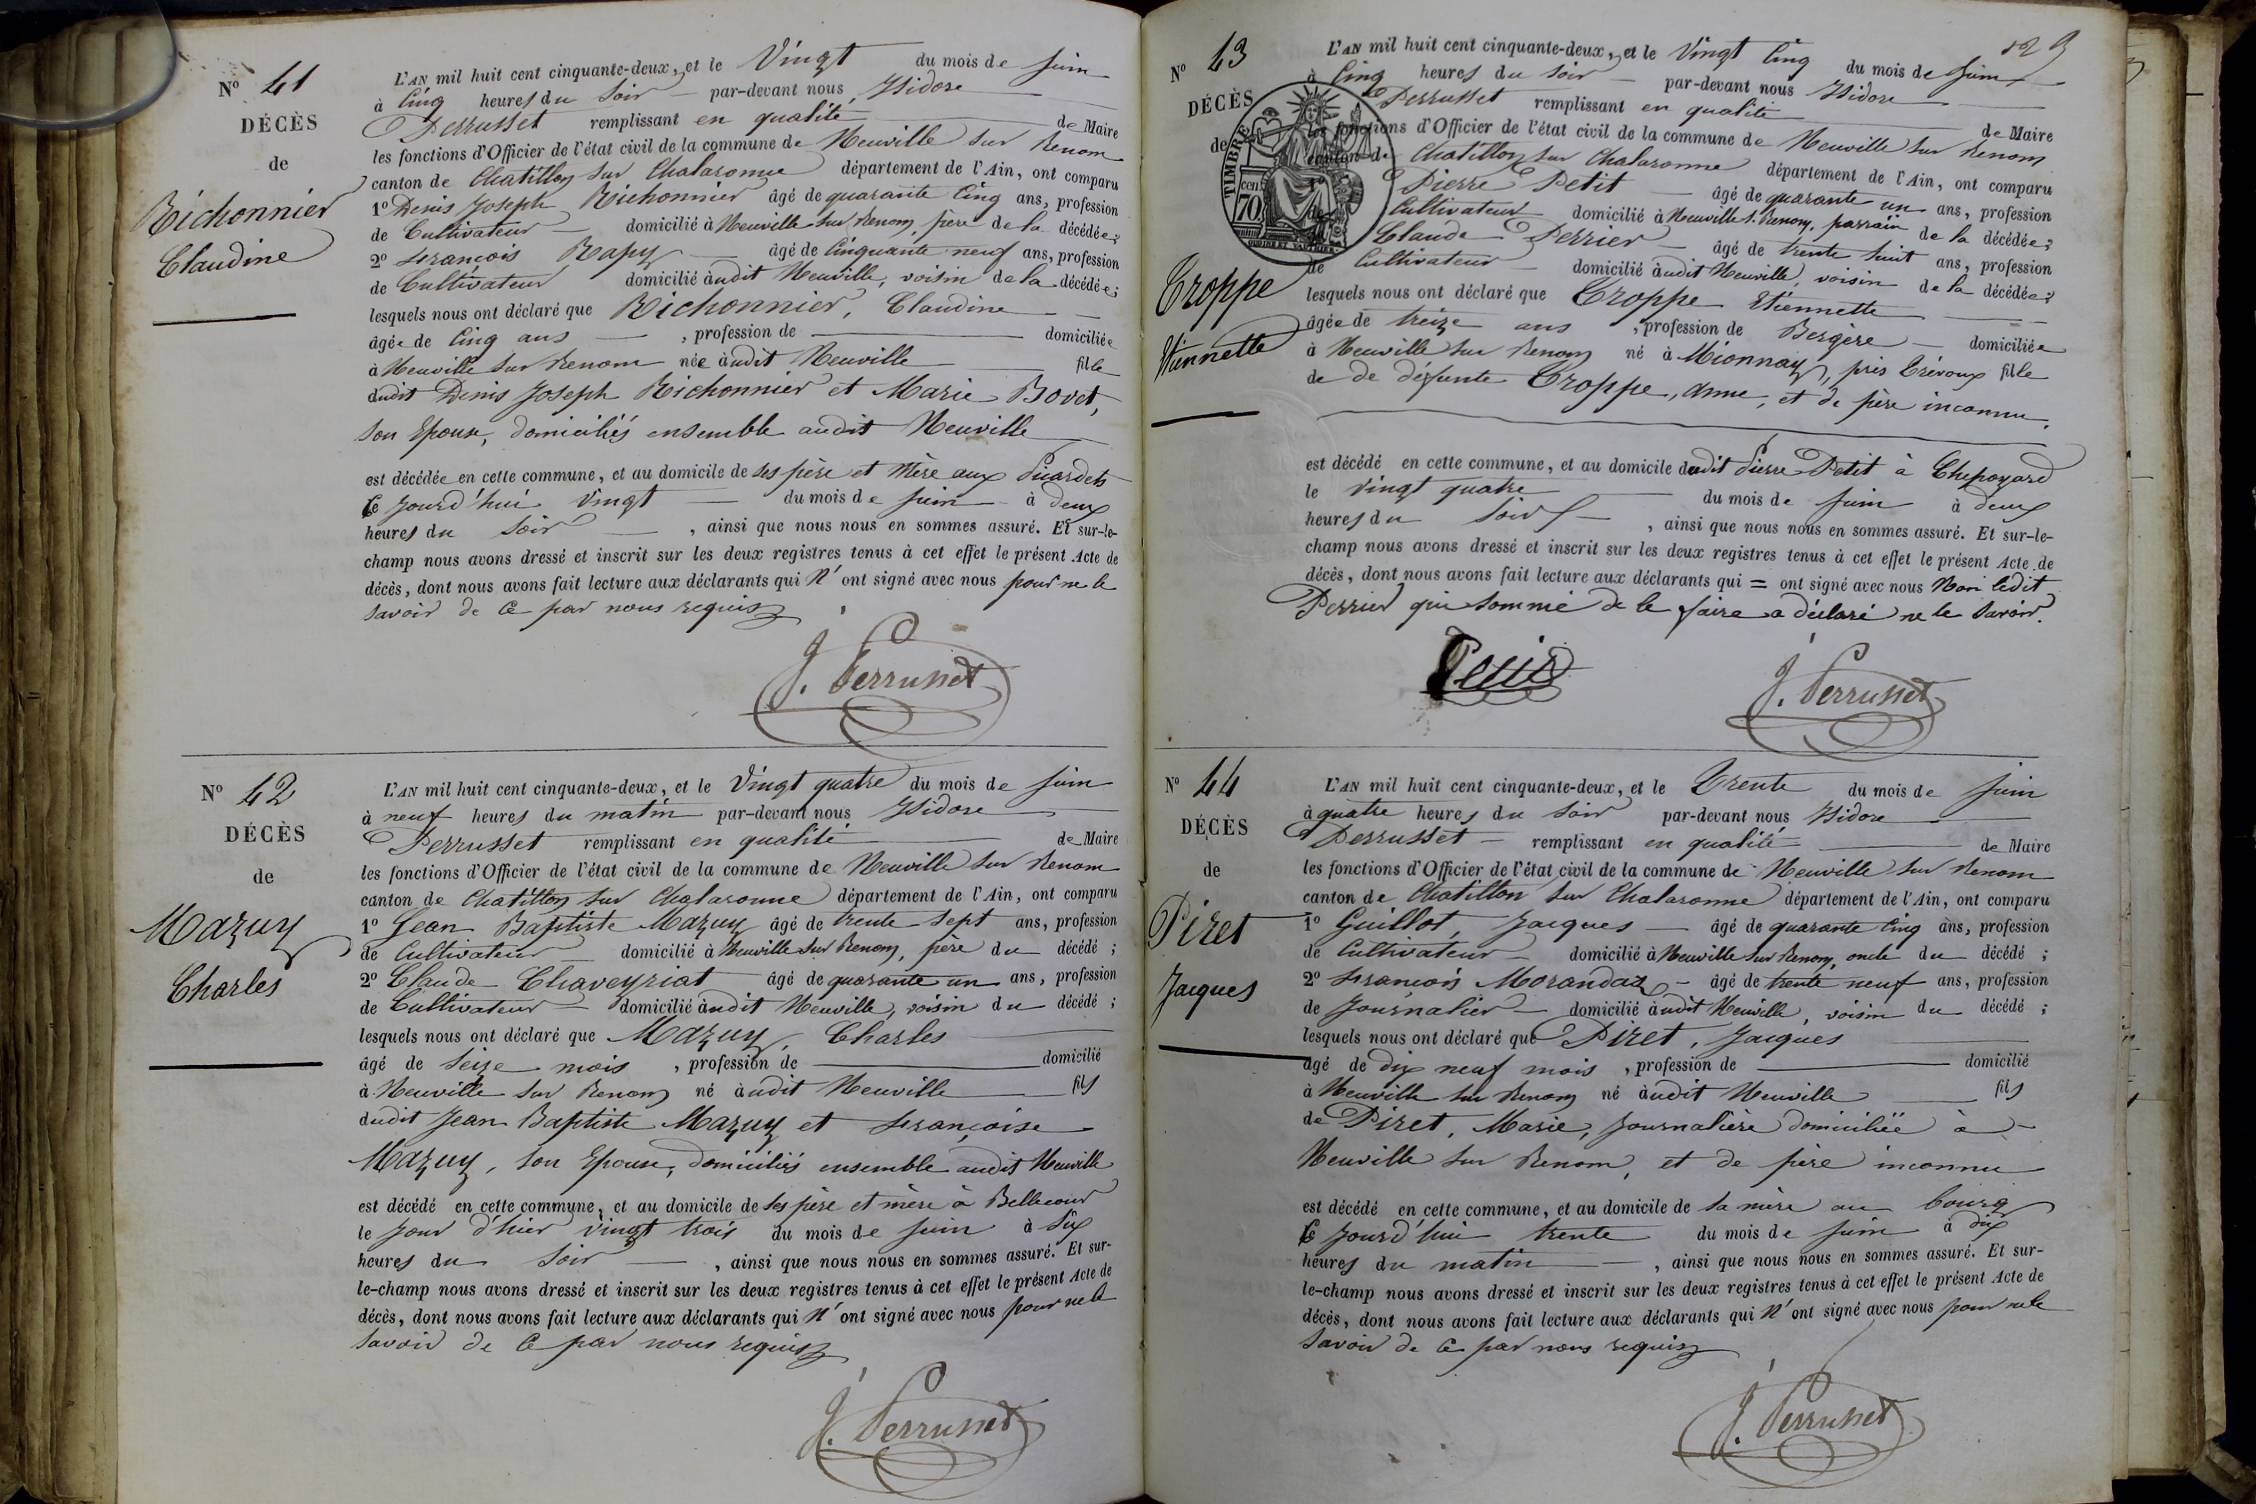 N° 41
DÉCÈS
de
Richonnier
Claudine
L'AN mil huit cent cinquante-deux, et le Vingt du mois de Juin
à Cinq heures du Soir par-devant nous Isidore
Perrusset remplissant en qualité de Maire
les fonctions d'Officier de l'état civil de la commune de Neuville sur Renom
canton de Chatillon sur Chalaronne département de l'Ain, ont comparu
1° Denis Joseph Richonnier âgé de quarante Cinq ans, profession
de Cultivateur domicilié à Neuville sur Renom, père de la décédée;
2° François Rapy âgé de Cinquante neuf ans, profession
de Cultivateur domicilié àudit Neuville, voisin de la décédée;
lesquels nous ont déclaré que Richonnier, Claudine
âgée de Cinq ans, profession de domiciliée
à Neuville sur Renom née àudit Neuville fille
dudit Denis Joseph Richonnier et Marie Bovet,
son Epouse, domiciliés ensemble audit Neuville
est décédée en cette commune, et au domicile de ses père et mère aux Picardets
Ce jourd'hui Vingt du mois de Juin à deux
heures du Soir, ainsi que nous nous en sommes assuré. Et sur-le-
champ nous avons dressé et inscrit sur les deux registres tenus à cet effet le présent Acte de
décès, dont nous avons fait lecture aux déclarants qui n'ont signé avec nous pour ne le
savoir de Ce par nous requis
J. Perrusset
N° 42
DÉCÈS
de
Mazuy
Charles
L'AN mil huit cent cinquante-deux, et le Vingt quatre du mois de Juin
à neuf heures du matin par-devant nous Isidore
Perrusset remplissant en qualité de Maire
les fonctions d'Officier de l'état civil de la commune de Neuville sur Renom
canton de Chatillon sur Chalaronne département de l'Ain, ont comparu
1° Jean Baptiste Mazuy âgé de trente sept ans, profession
de Cultivateur domicilié à Neuville sur Renom, père du décédé;
2° Claude Chaveyriat âgé de quarante un ans, profession
de Cultivateur domicilié àudit Neuville, voisin du décédé;
lesquels nous ont déclaré que Mazuy, Charles
âgé de Seize mois, profession de domicilié
à Neuville sur Renom né àudit Neuville fils
dudit Jean Baptiste Mazuy et Françoise
Mazuy, son Epouse, domiciliés ensemble audit Neuville
est décédé en cette commune, et au domicile de ses père et mère à Bellecour
le jour d'hier vingt trois du mois de Juin à Six
heures du Soir, ainsi que nous nous en sommes assuré. Et sur-
le-champ nous avons dressé et inscrit sur les deux registres tenus à cet effet le présent Acte de
décès, dont nous avons fait lecture aux déclarants qui n'ont signé avec nous pour ne le
savoir de Ce par nous requis
J. Perrusset
129
N° 43
DÉCÈS
de
Croppe
Etiennette
TIMBRE
70
L'AN mil huit cent cinquante-deux, et le Vingt Cinq du mois de Juin
à Cinq heures du Soir par-devant nous Isidore
Perrusset remplissant en qualité de Maire
les fonctions d'Officier de l'état civil de la commune de Neuville sur Renom
canton de Chatillon sur Chalaronne département de l'Ain, ont comparu
Pierre Petit âgé de quarante un ans, profession
Cultivateur domicilié à Neuville s. Renom, parrain de la décédée;
Claude Perrier âgé de trente huit ans, profession
de Cultivateur domicilié àudit Neuville, voisin de la décédée;
lesquels nous ont déclaré que Croppe Etiennette
âgée de treize ans, profession de Bergère domiciliée
à Neuville sur Renom né à Mionnay, près Trévoux fille
de de défunte Croppe, Anne, et de père inconnu.
est décédé en cette commune, et au domicile dudit Pierre Petit à Chepoyard
le vingt quatre du mois de Juin à deux
heures du Soir, ainsi que nous nous en sommes assuré. Et sur-le-
champ nous avons dressé et inscrit sur les deux registres tenus à cet effet le présent Acte de
décès, dont nous avons fait lecture aux déclarants qui = ont signé avec nous Non ledit
Perrier qui sommé de le faire a déclaré ne le savoir.
Petit
J. Perrusset
N° 44
DÉCÈS
de
Piret
Jacques
L'AN mil huit cent cinquante-deux, et le Trente du mois de Juin
à quatre heures du Soir par-devant nous Isidore
Perrusset remplissant en qualité de Maire
les fonctions d'Officier de l'état civil de la commune de Neuville sur Renom
canton de Chatillon sur Chalaronne département de l'Ain, ont comparu
1° Guillot, Jacques âgé de quarante Cinq ans, profession
de Cultivateur domicilié à Neuville sur Renom, oncle du décédé;
2° François Morandaz âgé de trente neuf ans, profession
de Journalier domicilié àudit Neuville, voisin du décédé;
lesquels nous ont déclaré que Piret, Jacques
âgé de dix neuf mois, profession de domicilié
à Neuville sur Renom né àudit Neuville fils
de Piret, Marie, Journalière domiciliée à
Neuville sur Renom, et de père inconnu
est décédé en cette commune, et au domicile de sa mère au bourg
Ce jourd'hui trente du mois de Juin à dix
heures du matin, ainsi que nous nous en sommes assuré. Et sur-
le-champ nous avons dressé et inscrit sur les deux registres tenus à cet effet le présent Acte de
décès, dont nous avons fait lecture aux déclarants qui n'ont signé avec nous pour ne le
savoir de Ce par nous requis
J. Perrusset